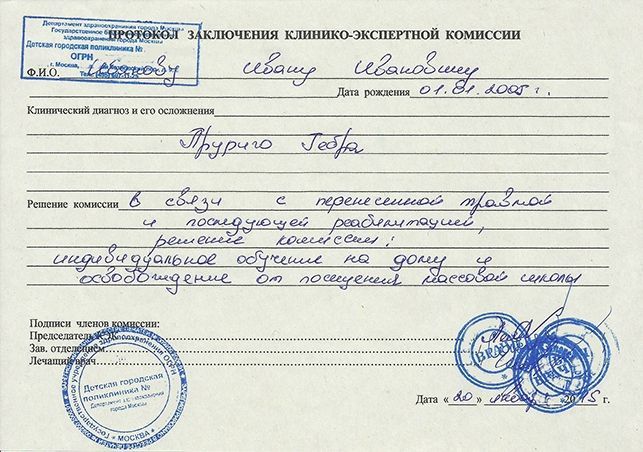 Департамент здравоохранения города Москвы
здравоохранения города Москвы
Детская городская поликлиника №
ОГРН
г. Москва,
ПРОТОКОЛ ЗАКЛЮЧЕНИЯ КЛИНИКО-ЭКСПЕРТНОЙ КОМИССИИ
Ф.И.О. Иванову Ивану Ивановичу
Дата рождения 01.01.2005 г.
Клинический диагноз и его осложнения
Пруриго Гебра
Решение комиссии в связи с перенесенной травмой
и последующей реабилитацией,
решение комиссии:
индивидуальное обучение на дому и
освобождение от посещения массовой школы
Подписи членов комиссии:
Председатель КЭК
Зав. отделением
Лечащий врач
Детская городская
поликлиника №
города Москвы
* МОСКВА *
Дата « 20 » 2015 г.